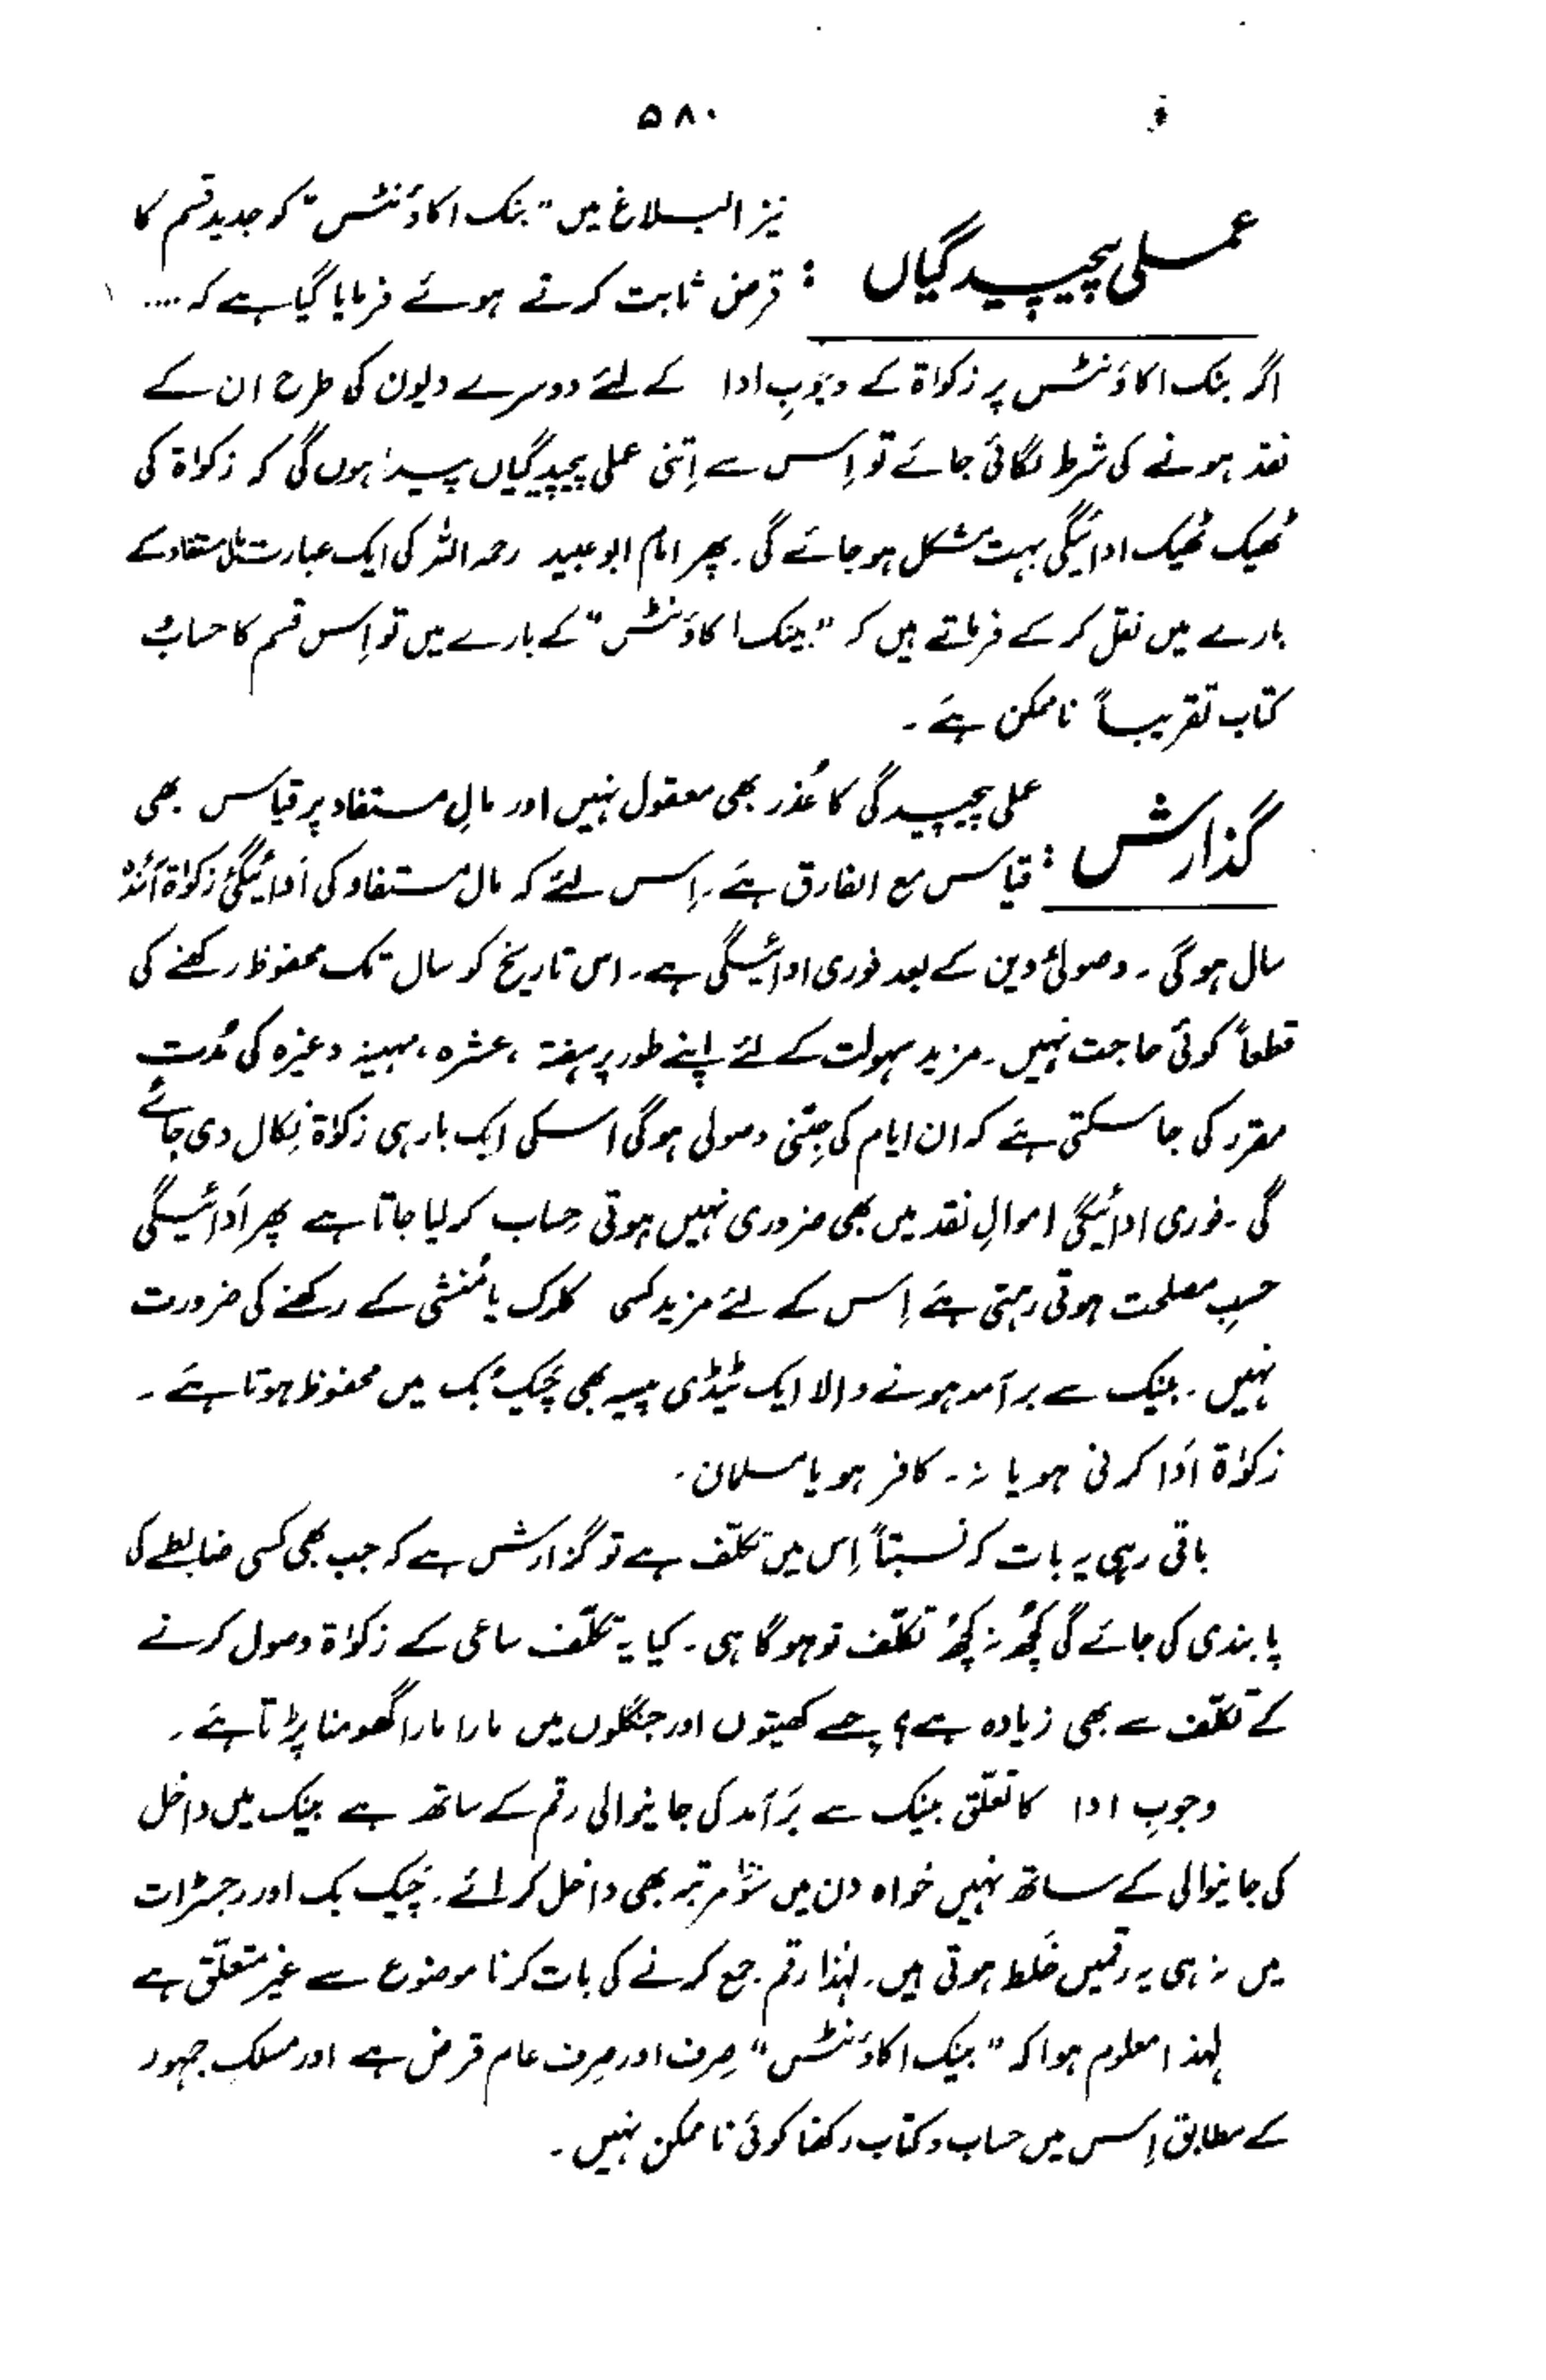 ۵۸۰
عملی پیچیدگیاں :
نیز البلاغ میں "بنک اکاؤنٹس" کو جدید قسم کا
قرض ثابت کرتے ہوئے فرمایا گیا ہے کہ ....
اگر بنک اکاؤنٹس پر زکواۃ کے وجوبِ ادا کے لئے دوسرے دیون کی طرح ان کے
نقد ہونے کی شرط لگائی جائے تو اِس سے اِتنی عملی پیچیدگیاں پیدا ہوں گی کہ زکواۃ کی
ٹھیک ٹھیک ادائیگی بہت مشکل ہو جائے گی۔ پھر امام ابو عبید رحمہ اللہ کی ایک عبارت مالِ مستفاد کے
بارے میں نقل کر کے فرماتے ہیں کہ "بینک اکاؤنٹس" کے بارے میں تو اِس قسم کا حساب
کتاب تقریباً ناممکن ہے۔
گذارش :
عملی پیچیدگی کا عُذر بھی معقول نہیں اور مالِ مستفاد پر قیاس بھی
قیاس مع الفارق ہے۔ اِس لئے کہ مالِ مستفاد کی اَدائیگیٔ زکواۃ آئندہ
سال ہو گی۔ وصولیٔ دین کے بعد فوری ادائیگی ہے۔ اس تاریخ کو سال تک محفوظ رکھنے کی
قطعاً کوئی حاجت نہیں۔ مزید سہولت کے لئے اپنے طور پر ہفتہ ، عشرہ ، مہینہ وغیرہ کی مُدت
مقرر کی جا سکتی ہے کہ ان ایام کی جِتنی وصولی ہوگی اسکی ایک بار ہی زکوٰۃ نِکال دی جائے
گی۔ فوری ادائیگی اموالِ نقد میں بھی ضروری نہیں ہوتی حساب کر لیا جاتا ہے پھر اَدائیگی
حسبِ مصلحت ہوتی رہتی ہے اِس کے لئے مزید کسی کلرک یا مُنشی کے رکھنے کی ضرورت
نہیں۔ بینک سے برآمد ہونے والا ایک ٹیڈی پیسہ بھی چَیک بُک میں محفوظ ہوتا ہے۔
زکوٰۃ اَدا کرنی ہو یا نہ۔ کافر ہو یا مسلمان۔
باقی رہی یہ بات کہ نسبتاً اِس میں تکلّف ہے تو گزارش ہے کہ جب بھی کسی ضابطے کی
پابندی کی جائے گی کچھُ نہ کچھُ تکلّف تو ہوگا ہی۔ کیا یہ تکلّف ساعی کے زکواۃ وصول کرنے
کے تکلّف سے بھی زیادہ ہے؟ جسے کھیتوں اور جنگلوں میں مارا مارا گھومنا پڑتا ہے۔
وجوبِ ادا کا تعلّق بینک سے بَرآمد کی جانیوالی رقم کے ساتھ ہے بینک میں داخل
کی جانیوالی کے ساتھ نہیں خواہ دن میں سَو مرتبہ بھی داخل کرائے۔ چَیک بک اور رجسٹرات
میں نہ ہی یہ رقمیں خَلط ہوتی ہیں۔ لہٰذا رقم جمع کرنے کی بات کرنا موضوع سے غیر متعلّق ہے
لہٰذا معلوم ہوا کہ "بینک اکاؤنٹس" صِرف اور صِرف عام قرض ہے اور مسلکِ جمہور
کے مطابق اِس میں حساب و کتاب رکھنا کوئی ناممکن نہیں۔